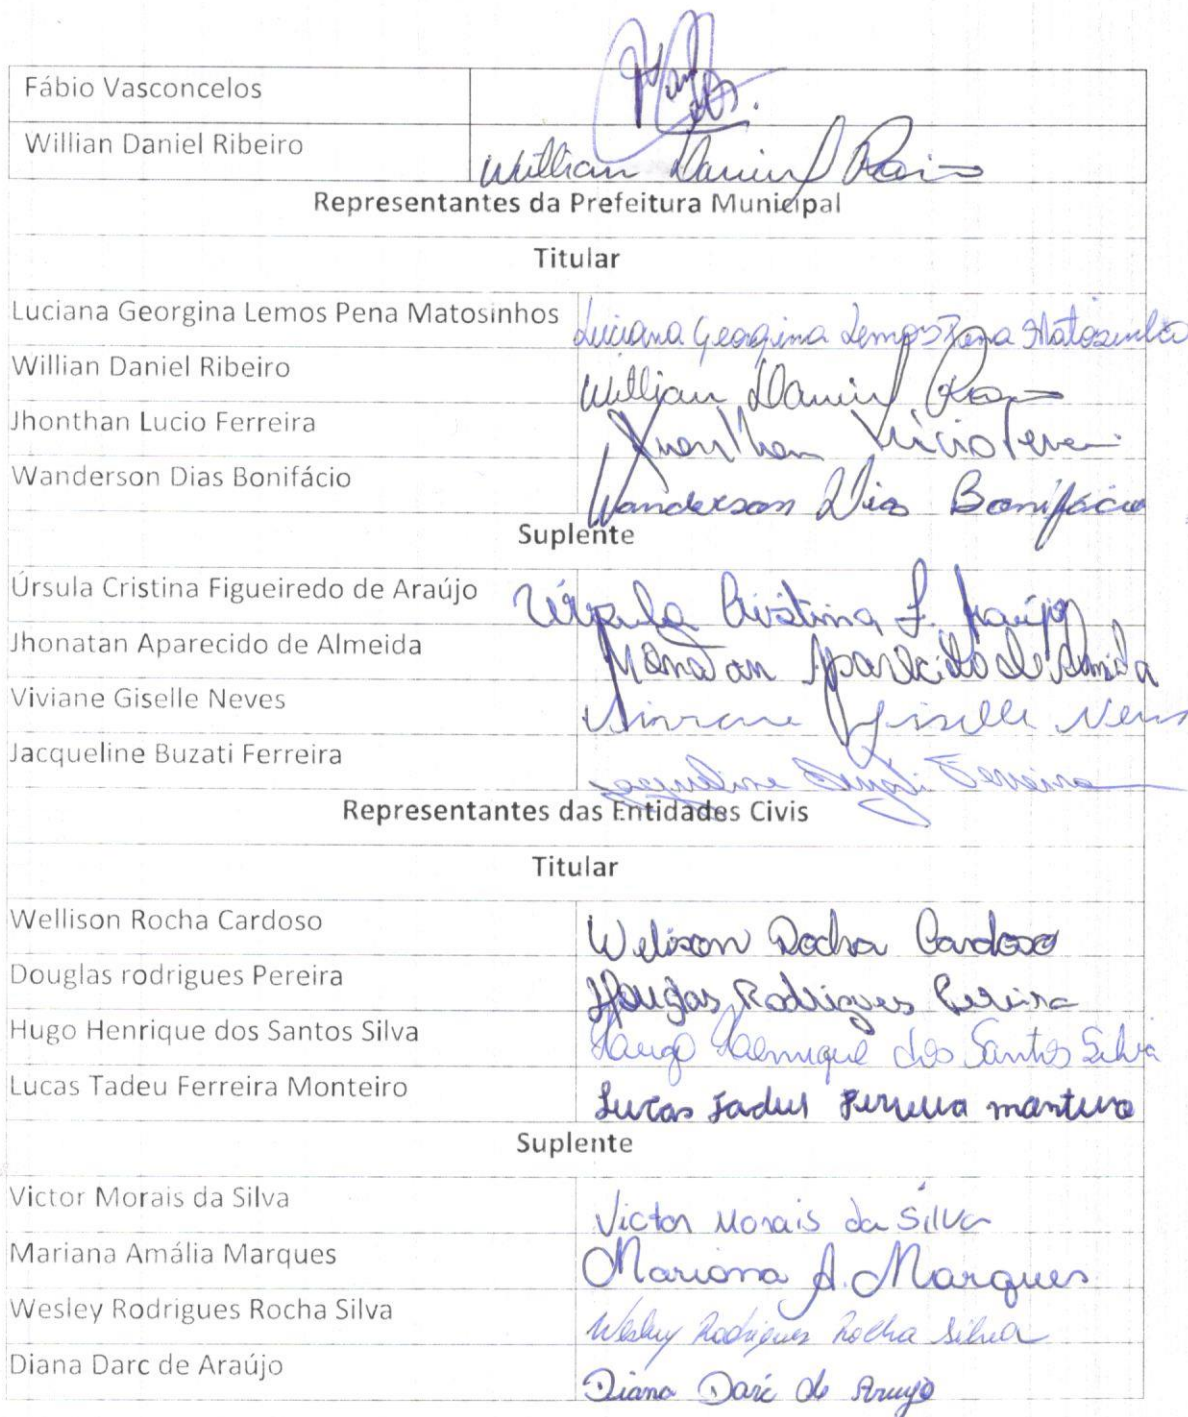 Fábio Vasconcelos
Willian Daniel Ribeiro Willian Daniel
Representantes da Prefeitura Municipal
Titular
Luciana Georgina Lemos Pena Matosinhos Luciana Georgina Lemos Pena Matosinhos
Willian Daniel Ribeiro Willian Daniel
Jhonthan Lucio Ferreira Lúcio
Wanderson Dias Bonifácio Wanderson Dias Bonifácio
Suplente
Úrsula Cristina Figueiredo de Araújo Úrsula Cristina F. Araújo
Jhonatan Aparecido de Almeida Jhonatan Aparecido de Almeida
Viviane Giselle Neves Viviane Giselle Neves
Jacqueline Buzati Ferreira Jacqueline Buzati Ferreira
Representantes das Entidades Civis
Titular
Wellison Rocha Cardoso Welison Rocha Cardoso
Douglas rodrigues Pereira Douglas Rodrigues Pereira
Hugo Henrique dos Santos Silva Hugo Henrique dos Santos Silva
Lucas Tadeu Ferreira Monteiro Lucas Tadeu Ferreira monteiro
Suplente
Victor Morais da Silva Victor Morais da Silva
Mariana Amália Marques Mariana A. Marques
Wesley Rodrigues Rocha Silva Wesley Rodrigues Rocha Silva
Diana Darc de Araújo Diana Darc de Araujo